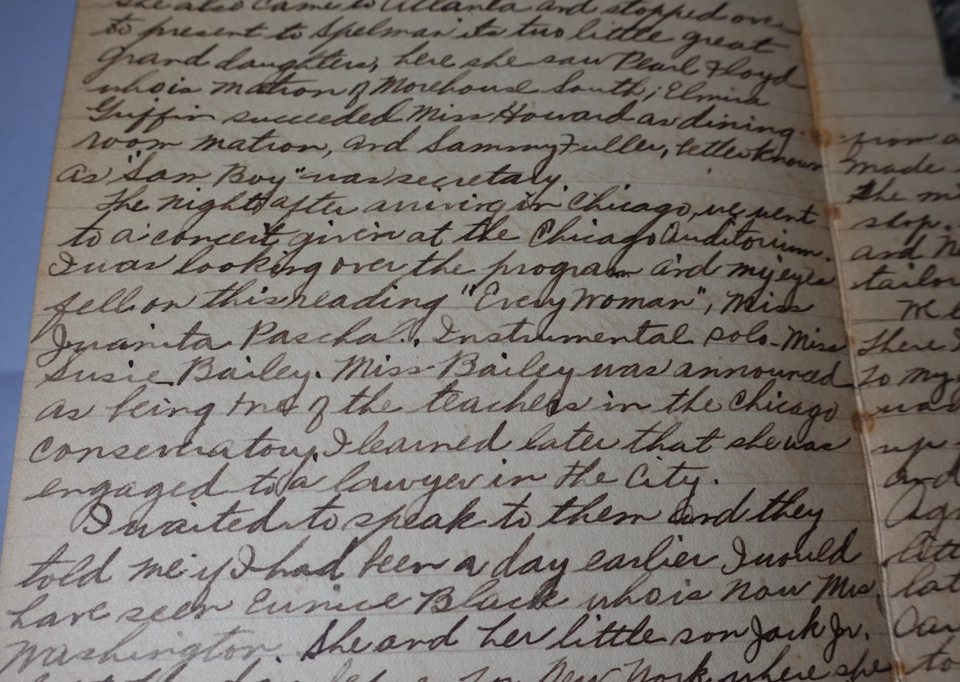 she also came to Atlanta and stopped over
to present to Spelman its two little great
grand daughters, here she saw Pearl Floyd
who is matron of Morehouse South; Elmira
Griffin succeeded Miss Howard as dining-
room matron, and Sammy Fuller, better known
as "Sam Boy" was secretary.
The night after arriving in Chicago, we went
to a concert given at the Chicago Auditorium.
I was looking over the program and my eyes
fell on this reading "Every Woman", Miss
Juanita Paschal., Instrumental solo-Miss
Susie Bailey. Miss Bailey was announced
as being one of the teachers in the Chicago
conservatory, I learned later that she was
engaged to a lawyer in the City.
I waited to speak to them and they
told me if I had been a day earlier I would
have seen Eunice Black who is now Mrs.
Washington. She and her little son Jack Jr.
New York where she
from a
made
the
stop.
and
tailor
There
To my
was
up
and
to